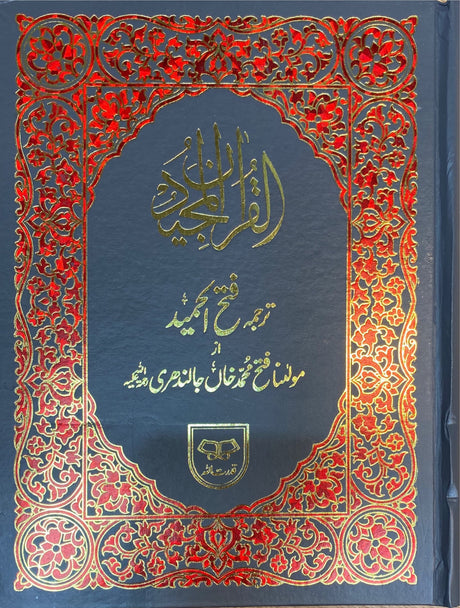 القرآن المجيد
ترجمہ فتح الحمید
از
مولانا فتح محمد خاں جالندھری رحمۃ اللہ علیہ